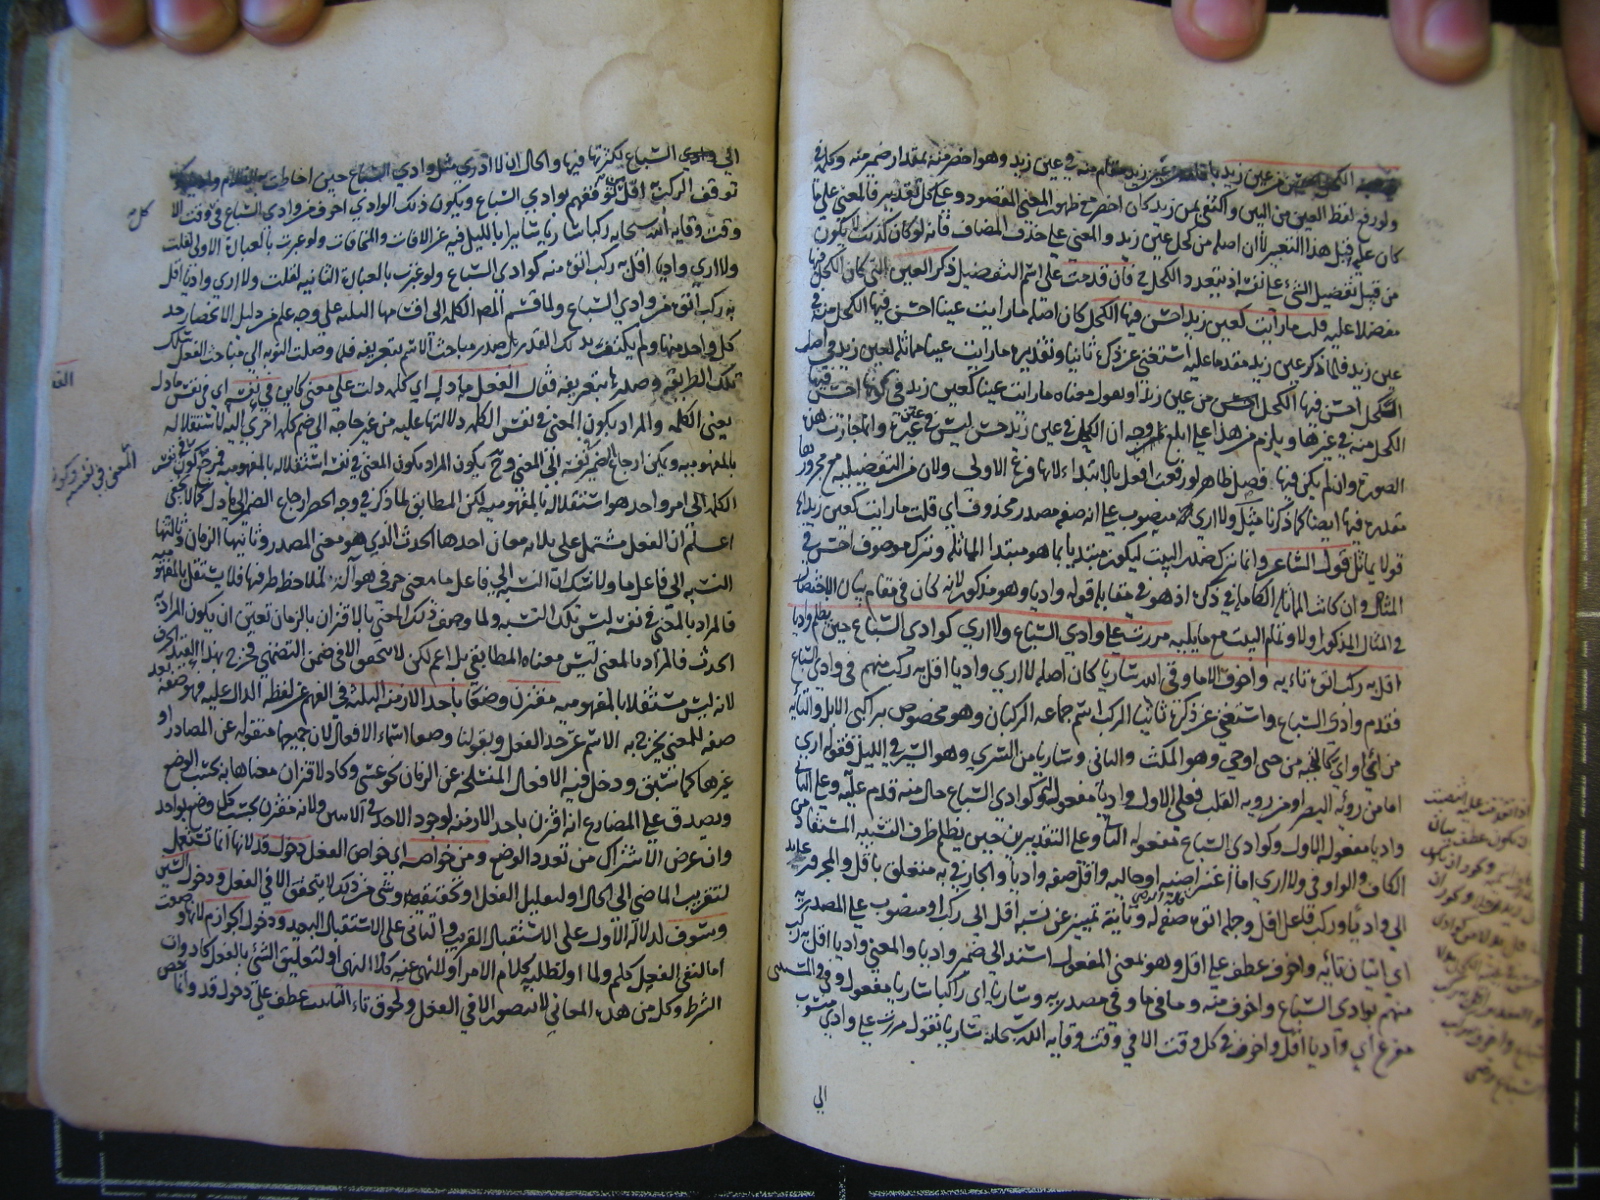 الكحل من عين زيد باقامة عين زيد مقام منه في عين زيد وهو اخصر منه بمقدار ضمير منه وكلمة في
ولو رفع لفظ العين من البين واكتفى بمن زيد كان اخصر مع ظهور المعنى المقصود وعلى كل تقدير فالمعنى على ما
كان عليه قبل هذا التغيير لان اصله من كحل عين زيد والمعنى على حذف المضاف فانه لو كان كذلك يكون
من قبيل تفضيل الشيء على نفسه اذ يتعدد الكحل فان قدمت على اسم التفضيل ذكر العين التي كان الكحل فيها
مفضلا عليه قلت ما رايت كعين زيد احسن فيها الكحل كان اصله ما رايت عينا احسن فيها الكحل منه في
عين زيد فلما ذكر عين زيد مقدما عليه استغنى عن ذكره ثانيا وتقديره ما رايت عينا مماثلة لعين زيد في اصله
الكحل احسن فيها الكحل من عين زيد او نقول معناه ما رايت عينا كعين زيد في كونها احسن فيها
الكحل منه في غيرها ويلزم من هذا على ابلغ وجه ان الكحل في عين زيد حسن ليس في عين غيره وانما جازت هذه
الصورة وان لم يكن فيها فصل ظاهر لو رفعت افعل بالابتداء لانها فرع الاولى ولان من التفضيلية مع مجرورها
مقدرة فيها ايضا كما ذكرنا مثل ولا ارى منصوب على انه صفة مصدر محذوف اي قلت ما رايت كعين زيد الخ
قولا يماثل قول الشاعر وانما ترك صدر البيت ليكون مبتديا بما هو مبتدا المماثلة وترك موصوف احسن في
المثال وان كانت المماثلة الكاملة في ذكره اذ هو في مقابلة قوله واديا وهو مذكور لانه كان في مقام بيان الاختصار
في المثال المذكور اولا وتمام البيت مع ما يليه مررت على وادي السباع ولا ارى كوادي السباع حين يظلم واديا
اقل به ركب اتوه تائية واخوف الا ما وقى الله ساريا كان اصله لا ارى واديا اقل به ركب منهم في وادي السباع
فقدم وادي السباع واستغنى عن ذكره ثانيا الركب اسم جماعة الركبان وهو مخصوص براكبي الابل والتائية
وهو المكث والتاني وساريا من السري وهو السير في الليل فقوله ارى
اما من رؤية البصر او من رؤية القلب فعلى الاول واديا مفعوله وكوادي السباع حال منه قدم عليه وعلى الثاني
واديا مفعوله الاول وكوادي السباع مفعوله الثاني وعلى التقديرين حين يظلم ظرف التشبيه المستفاد من
الكاف والواو في ولا ارى اما اعتراضية او حالية واقل صفة واديا والجار في به متعلق باقل والمجرور عائد
الى واديا وركب فاعل اقل وجملة اتوه صفة له وتائية تمييز عن نسبة اقل الى ركب او منصوب على المصدرية
اي اتيان تائية واخوف عطف على اقل وهو بمعنى المفعول اسند الى ضمير واديا والمعنى واديا اقل به ركب
منهم بوادي السباع واخوف منه وما في ما وقى مصدرية وساريا اي راكبا ساريا مفعول وقى والمستثنى
مفرغ اي واديا اقل واخوف في كل وقت الا في وقت وقاية الله سبحانه ساريا تقول مررت على وادي منسوب
الى
الى السباع لكثرتها فيها والحال اني لا ارى مثل وادي السباع حين احاطت
توقف الركب اقل من توقفهم بوادي السباع ويكون ذلك الوادي اخوف من وادي السباع في وقت الا
وقت وقاية الله سبحانه ركبا ساريا سايرا بالليل فيه عن الافات والمخافات ولو عبرت بالعبارة الاولى لقلت
ولا ارى واديا اقل به ركب اتوه منه كوادي السباع ولو عبرت بالعبارة الثانية لقلت ولا ارى واديا اقل
به ركب اتوه من وادي السباع ولما قسم المص الكلمة الى اقسامها الثلثة على وجه علم من دليل الانحصار حد
كل واحد منها ولم يكتف بذلك القدر بل صدر مباحث الاسم بتعريفه فلما وصلت النوبة الى مباحث الفعل سلك
تلك الطريقة وصدرها بتعريفه فقال الفعل ما دل اي كلمة دلت على معنى كاين في نفسه اي في نفس ما دل
يعني الكلمة والمراد بكون المعنى في نفس الكلمة دلالتها عليه من غير حاجة الى ضم كلمة اخرى اليها لاستقلاله
بالمفهومية ويمكن ارجاع الضمير في نفسه الى المعنى وح يكون المراد بكون المعنى في نفسه استقلاله بالمفهومية فمرجع كون المعنى في نفسه وكونه في نفس
الكلمة الى امر واحد هو استقلاله بالمفهومية لكن المطابق لما ذكر في وجه الحصر ارجاع الضمير الى ما دل كما لا يخفى
اعلم ان الفعل مشتمل على ثلاثة معان احدها الحدث الذي هو معنى المصدر وثانيها الزمان وثالثها
النسبة الى فاعل ما ولا شك ان النسبة الى فاعل ما معنى حرفي هو آلة لملاحظة طرفيها فلا يستقل بالمفهومية
فالمراد بالمعنى في نفسه ليس تلك النسبة ولما وصف ذلك المعنى بالاقتران بالزمان تعين ان يكون المراد به
الحدث فالمراد بالمعنى ليس معناه المطابقي بل اعم لكن لا يتحقق الا في ضمن التضمني فخرج بهذا القيد الحرف
لانه ليس مستقلا بالمفهومية مقترن وضعا باحد الازمنة الثلثة في الفهم عن لفظه الدال عليه فهو صفة بعد
صفة للمعنى يخرج به الاسم عن حد الفعل وبقولنا وضعا اسماء الافعال لان جميعها منقولة عن المصادر او
غيرها كما سبق ودخل فيه الافعال المنسلخة عن الزمان نحو عسى وكاد لاقتران معناها به بحسب الوضع
ويصدق على المضارع انه اقترن باحد الازمنة لوجود الاحد في الاثنين ولانه مقترن بحسب كل وضع بواحد
وان عرض الاشتراك من تعدد الوضع ومن خواصه اي خواص الفعل دخول قد لانها انما تستعمل
لتقريب الماضي الى الحال او لتقليل الفعل او تحقيقه وشيء من ذلك لا يتحقق الا في الفعل ودخول السين
وسوف لدلالة الاول على الاستقبال القريب والثاني على الاستقبال البعيد ودخول الجوازم لانها وضعت
اما لنفي الفعل كلم ولما او لطلبه كلام الامر او للنهي عنه كلا النهي او لتعليق الشيء بالفعل كادوات
الشرط وكل من هذه المعاني لا يتصور الا في الفعل ولحوق تاء التانيث عطف على دخول قد وانما خص